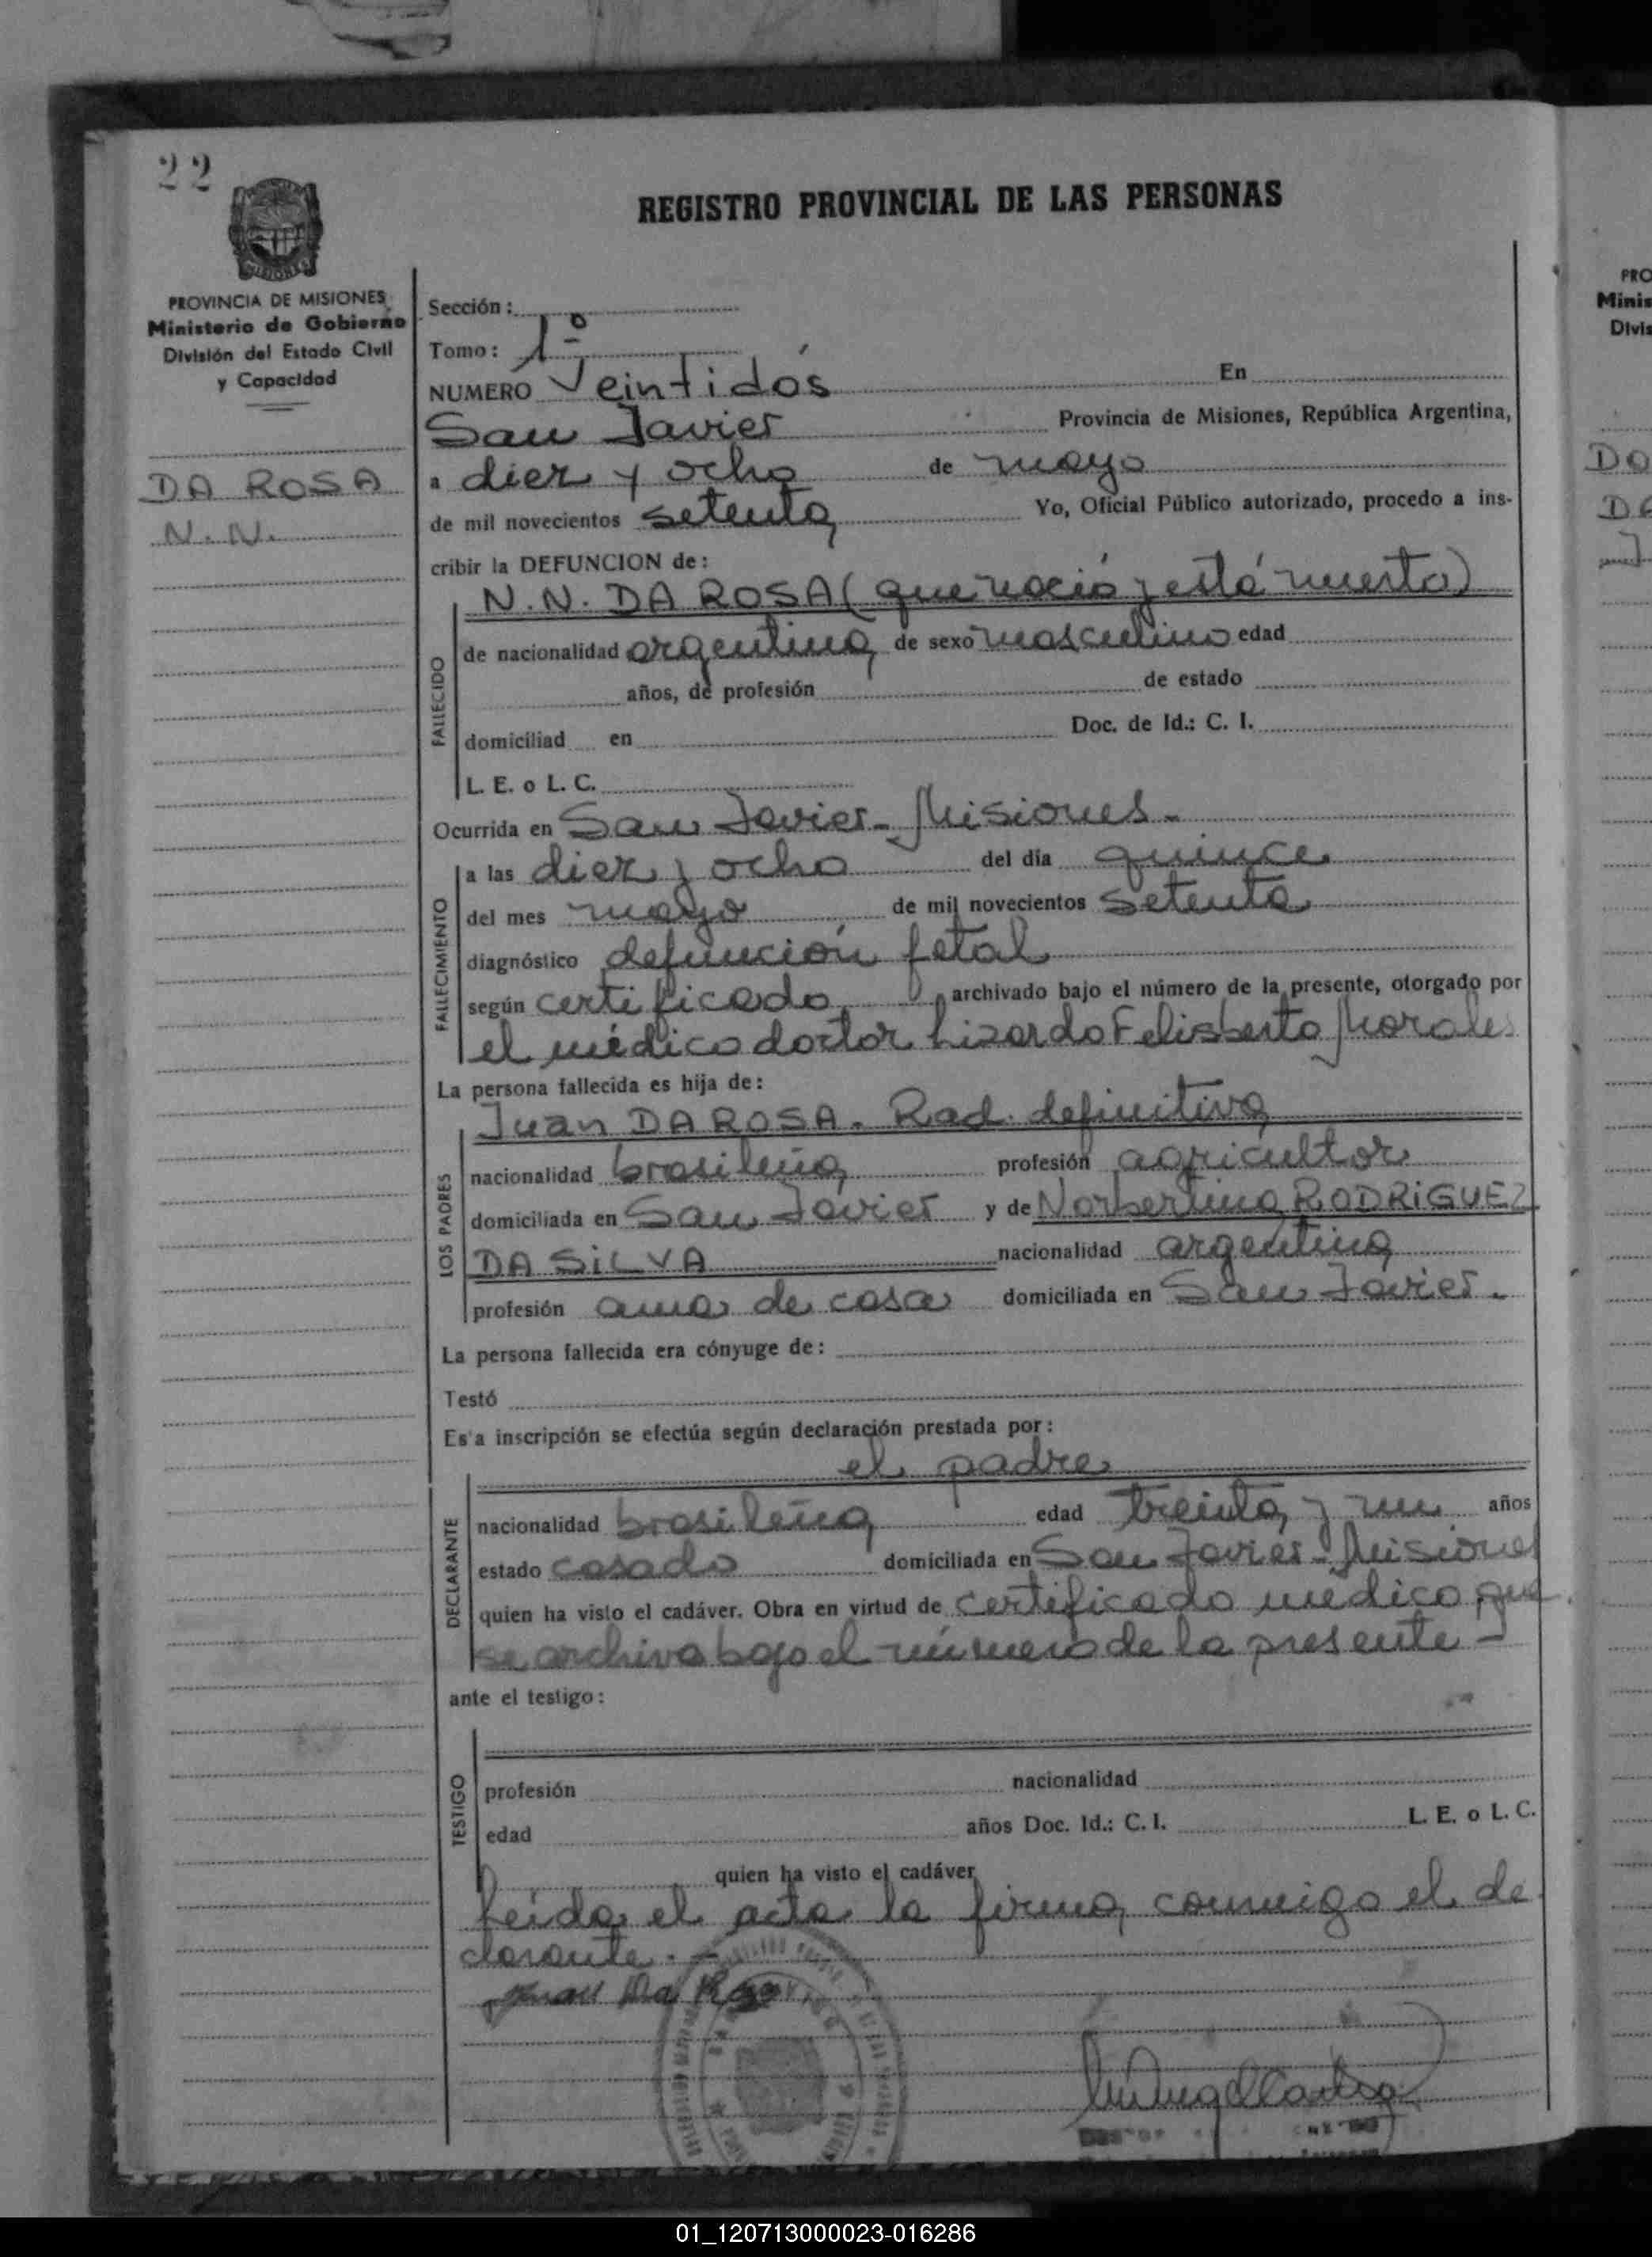 22
REGISTRO PROVINCIAL DE LAS PERSONAS
MISIONES
PROVINCIA DE MISIONES
Ministerio de Gobierno
División del Estado Civil
y Capacidad
DA ROSA
N.N.
Sección:
Tomo: 1º
NUMERO Veintidós En
San Javier Provincia de Misiones, República Argentina,
a diez y ocho de mayo
de mil novecientos setenta Yo, Oficial Público autorizado, procedo a ins-
cribir la DEFUNCION de:
N.N. DA ROSA (que nació y está muerto)
FALLECIDO
de nacionalidad argentina de sexo masculino edad
años, de profesión de estado
domiciliad en Doc. de Id.: C. I.
L. E. o L. C.
Ocurrida en San Javier - Misiones -
FALLECIMIENTO
a las diez y ocho del día quince
del mes mayo de mil novecientos setenta
diagnóstico defunción fetal
según certificado archivado bajo el número de la presente, otorgado por
el médico doctor Lizardo Felisberto Morales
La persona fallecida es hija de:
LOS PADRES
Juan DA ROSA. Rad. definitiva
nacionalidad brasileña profesión agricultor
domiciliada en San Javier y de Norbertina RODRIGUEZ
DA SILVA nacionalidad argentina
profesión ama de casa domiciliada en San Javier.
La persona fallecida era cónyuge de:
Testó
Es'a inscripción se efectúa según declaración prestada por:
el padre
DECLARANTE
nacionalidad brasileña edad treinta y un años
estado casado domiciliada en San Javier - Misiones
quien ha visto el cadáver. Obra en virtud de certificado médico que
se archiva bajo el número de la presente -
ante el testigo:
TESTIGO
profesión nacionalidad
edad años Doc. Id.: C. I. L. E. o L. C.
quien ha visto el cadáver
Leída el acta la firma conmigo el de
clarante. -
Juan Da Rosa
PRO
Minis
Divis
DA
01_120713000023-016286